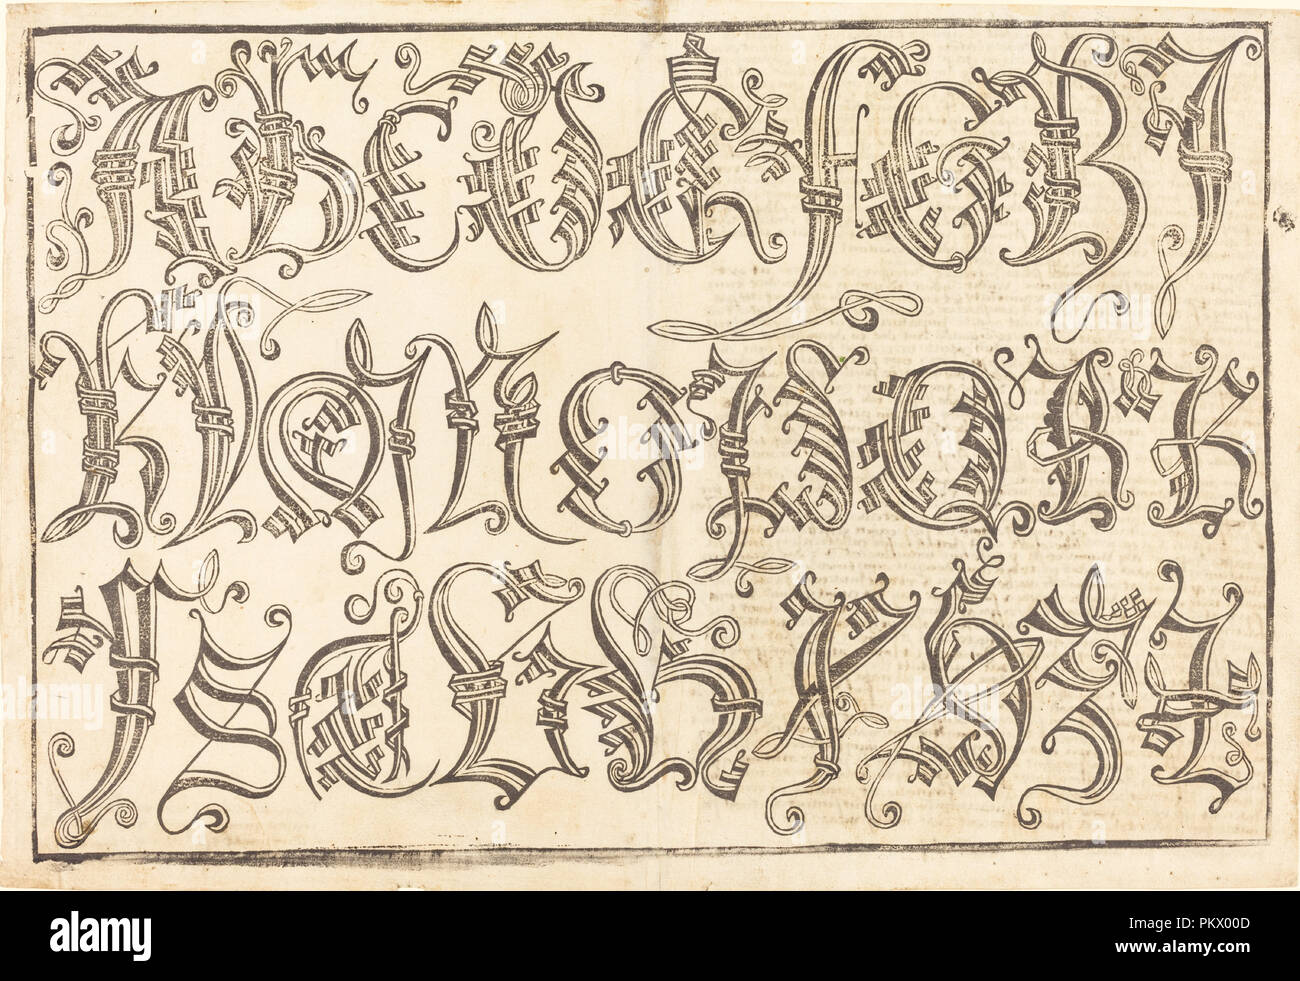 A B C D E F G H I
K L M N O P Q R R
ſ S T V W X Y Z
alamy
Image ID: PKX00D
www.alamy.com